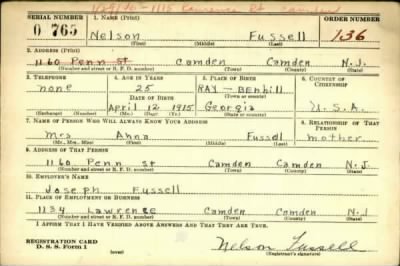 1/29/46-1115 Lawrence St Camden
SERIAL NUMBER 1. NAME (Print) ORDER NUMBER
0 765 Nelson Fussell 136
(First) (Middle) (Last)
2. ADDRESS (Print)
1160 Penn St Camden Camden N.J.
(Number and street or R. F. D. number) (Town) (County) (State)
3. TELEPHONE 4. AGE IN YEARS 5. PLACE OF BIRTH 6. COUNTRY OF CITIZENSHIP
none 25 RAY - BENHill
DATE OF BIRTH (Town or county)
April 12 1915 Georgia U.S.A.
(Mo.) (Day) (Yr.) (State or country)
7. NAME OF PERSON WHO WILL ALWAYS KNOW YOUR ADDRESS 8. RELATIONSHIP OF THAT PERSON
Mrs Anna Fussell mother
(Mr., Mrs., Miss) (First) (Middle) (Last)
9. ADDRESS OF THAT PERSON
1160 Penn St Camden Camden N.J.
(Number and street or R. F. D. number) (Town) (County) (State)
10. EMPLOYER'S NAME
Joseph Fussell
11. PLACE OF EMPLOYMENT OR BUSINESS
1134 Lawrence Camden Camden N.J
(Number and street or R. F. D. number) (Town) (County) (State)
I AFFIRM THAT I HAVE VERIFIED ABOVE ANSWERS AND THAT THEY ARE TRUE.
REGISTRATION CARD
D. S. S. Form 1 (over) Nelson Fussell
(Registrant's signature)